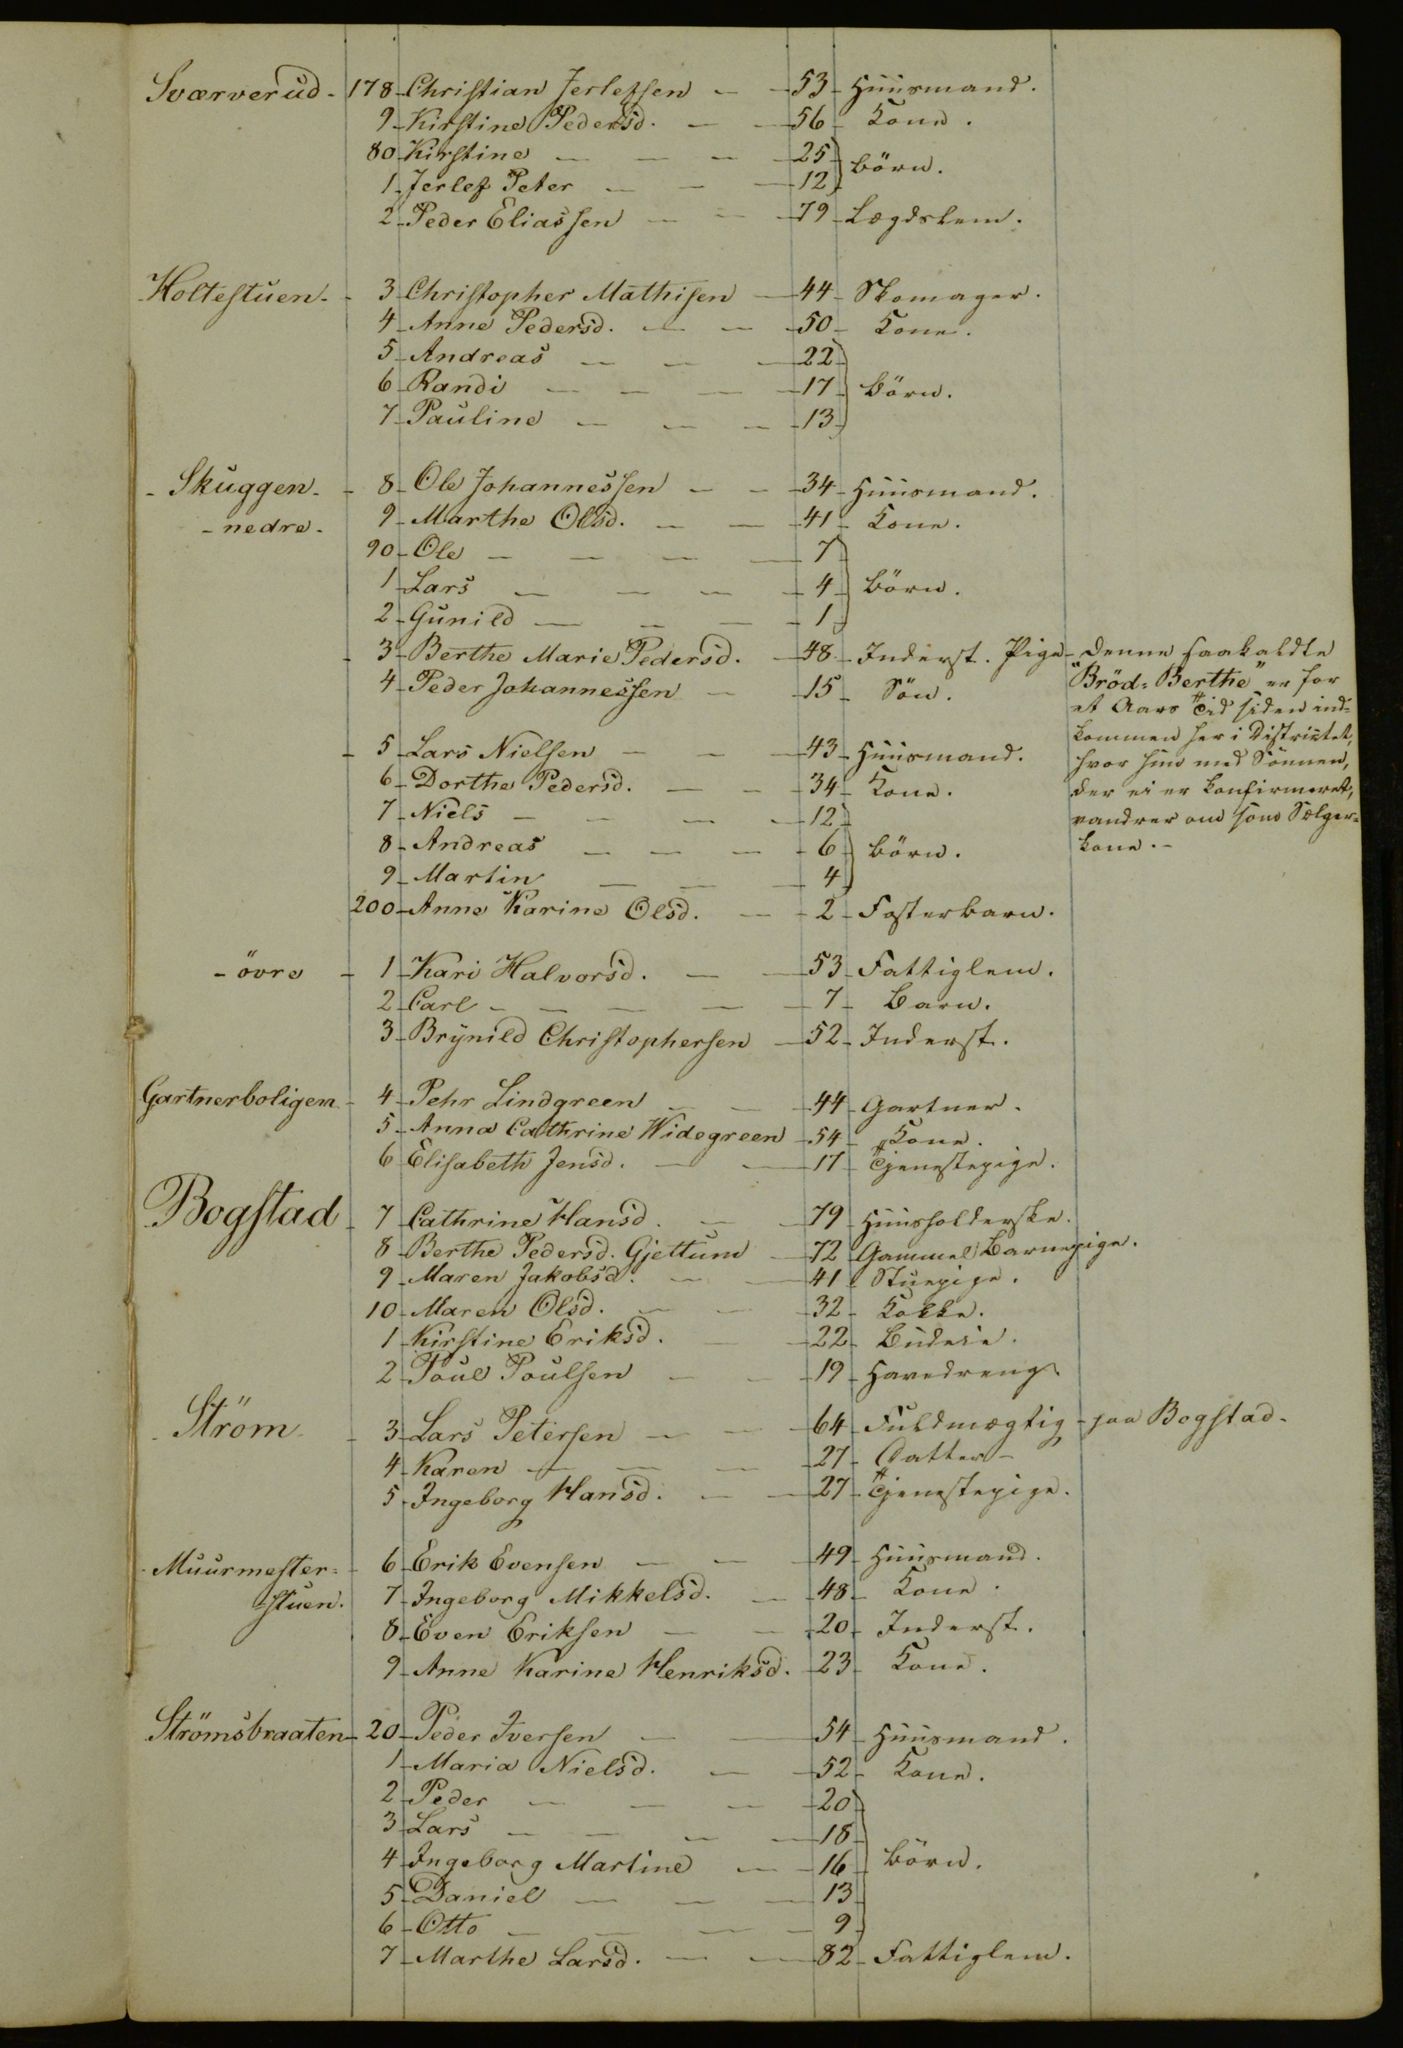 Sværverud - 178 - Christian Jerlefsen - 53 - Huusmand.
9 - Kirstine Pedersd. - 56 - Kone.
80 Kirstine - 25
1 - Jerlef Peter - 12 Börn.
2 - Peder Eliassen - 79 - Lægdslem.
Holtestuen - 3 - Christopher Mathisen - 44 - Skomager.
4 - Anne Pedersd. - 50 - Kone.
5 - Andreas - 22
6 - Randi - 17 - Börn.
7 - Pauline - 13
- Skuggen - 8 - Ole Johannessen - 34 - Huusmand.
- nedre - 9 - Marthe Olsd. - 41 - Kone.
90 - Ole - 7
1 - Lars - 4 Börn.
2 - Gunild - 1
3 - Berthe Marie Pedersd. - 48 - Inderst. Pige - Denne saakaldte
4 - Peder Johannessen - 15 - Sön. "Bröd-Berthe" er for
et Aars Tid siden ind-
5 - Lars Nielsen - 43 - Huusmand. kommen her i Districtet,
6 - Dorthe Pedersd. - 34 - Kone. hvor hun med Sönnen,
der ei er konfirmeret,
7 - Niels - 12 vandrer om som Sælger-
8 - Andreas - 6 Börn. kone. -
9 - Martin - 4
200 - Anne Karine Olsd. - 2 - Fosterbarn.
- övre - 1 - Kari Halvorsd. - 53 - Fattiglem.
2 - Carl - 7 - Barn.
3 - Brynild Christophersen - 52 - Inderst.
Gartnerboligen - 4 - Pehr Lindgreen - 44 - Gartner.
5 - Anna Cathrine Widegreen - 54 - Kone.
6 - Elisabeth Jensd. - 17 - Tjenestepige.
Bogstad - 7 - Cathrine Hansd. - 79 - Huusholderske.
8 - Berthe Pedersd. Gjettum - 72 - Gammel Barnepige.
9 - Maren Jakobsd. - 41 - Stuepige.
10 - Maren Olsd. - 32 - Kokke.
1 - Kirstine Eriksd. - 22 - Budeie.
2 - Poul Poulsen - 19 - Havedreng.
- Ström - 3 - Lars Petersen - 64 - Fuldmægtig - paa Bogstad -
4 - Karen - 27 - Datter -
5 - Ingeborg Hansd. - 27 - Tjenestepige.
- Muurmester- 6 - Erik Evensen - 49 - Huusmand.
stuen. 7 - Ingeborg Mikkelsd. - 48 - Kone.
8 - Even Eriksen - 20 - Inderst.
9 - Anne Karine Henriksd. - 23 - Kone.
Strömsbraaten - 20 - Peder Iversen - 54 - Huusmand.
1 - Maria Nielsd. - 52 - Kone.
2 - Peder - 20
3 - Lars - 18
4 - Ingeborg Martine - 16 - Börn.
5 - Daniel - 13
6 - Otto - 9
7 - Marthe Larsd. - 82 - Fattiglem.